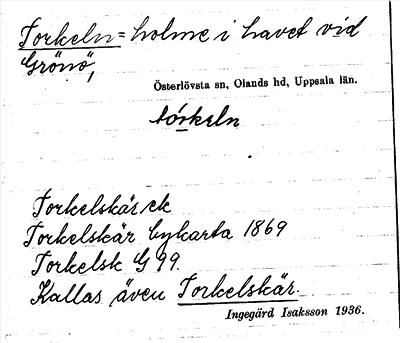 Torkeln = holme i havet vid
Grönö,
Österlövsta sn, Olands hd, Uppsala län.
tórkeln
Torkelskär ek
Torkelskär bykarta 1869
Torkelsk G 99.
Kallas även Torkelskär.
Ingegärd Isaksson 1936.